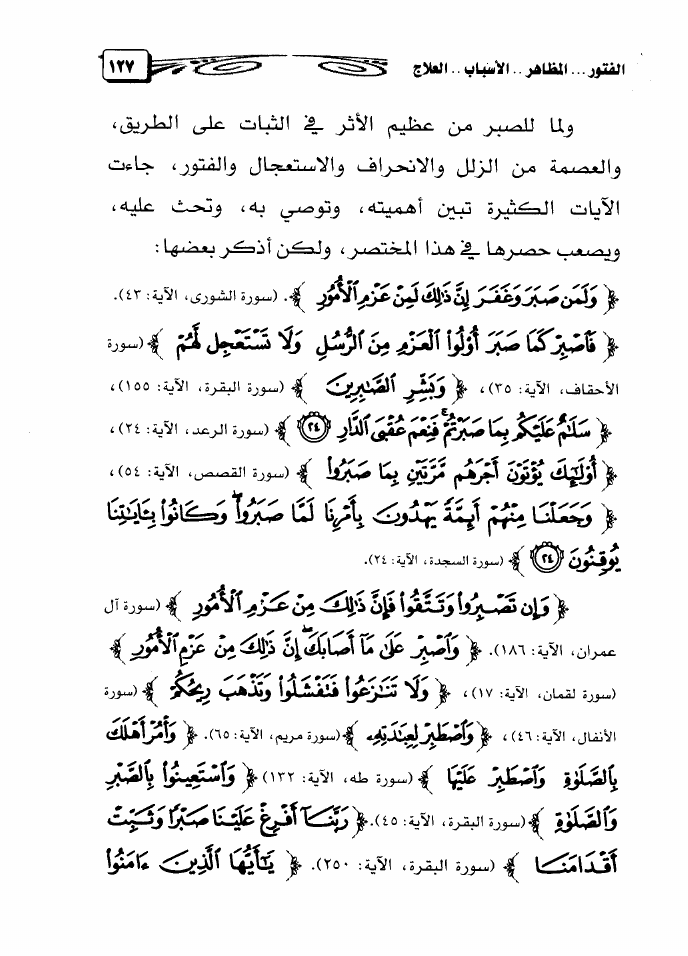 الفتور... المظاهر.. الأسباب.. العلاج ١٢٧
ولما للصبر من عظيم الأثر في الثبات على الطريق،
والعصمة من الزلل والانحراف والاستعجال والفتور، جاءت
الآيات الكثيرة تبين أهميته، وتوصي به، وتحث عليه،
ويصعب حصرها في هذا المختصر، ولكن أذكر بعضها:
﴿ وَلَمَن صَبَرَ وَغَفَرَ إِنَّ ذَٰلِكَ لَمِنْ عَزْمِ ٱلْأُمُورِ ﴾. (سورة الشورى، الآية: ٤٣).
﴿ فَٱصْبِرْ كَمَا صَبَرَ أُو۟لُوا۟ ٱلْعَزْمِ مِنَ ٱلرُّسُلِ وَلَا تَسْتَعْجِل لَّهُمْ ﴾ (سورة
الأحقاف، الآية: ٣٥)، ﴿ وَبَشِّرِ ٱلصَّـٰبِرِينَ ﴾ (سورة البقرة، الآية: ١٥٥)،
﴿ سَلَـٰمٌ عَلَيْكُم بِمَا صَبَرْتُمْ ۚ فَنِعْمَ عُقْبَى ٱلدَّارِ ٢٤ ﴾ (سورة الرعد، الآية: ٢٤)،
﴿ أُو۟لَـٰٓئِكَ يُؤْتَوْنَ أَجْرَهُم مَّرَّتَيْنِ بِمَا صَبَرُوا۟ ﴾ (سورة القصص، الآية: ٥٤)،
﴿ وَجَعَلْنَا مِنْهُمْ أَئِمَّةً يَهْدُونَ بِأَمْرِنَا لَمَّا صَبَرُوا۟ ۖ وَكَانُوا۟ بِـَٔايَـٰتِنَا
يُوقِنُونَ ٢٤ ﴾ (سورة السجدة، الآية: ٢٤).
﴿ وَإِن تَصْبِرُوا۟ وَتَتَّقُوا۟ فَإِنَّ ذَٰلِكَ مِنْ عَزْمِ ٱلْأُمُورِ ﴾ (سورة آل
عمران، الآية: ١٨٦). ﴿ وَٱصْبِرْ عَلَىٰ مَآ أَصَابَكَ ۖ إِنَّ ذَٰلِكَ مِنْ عَزْمِ ٱلْأُمُورِ ﴾
(سورة لقمان، الآية: ١٧)، ﴿ وَلَا تَنَـٰزَعُوا۟ فَتَفْشَلُوا۟ وَتَذْهَبَ رِيحُكُمْ ﴾ (سورة
الأنفال، الآية: ٤٦)، ﴿ وَٱصْطَبِرْ لِعِبَـٰدَتِهِۦ ﴾ (سورة مريم، الآية: ٦٥). ﴿ وَأْمُرْ أَهْلَكَ
بِٱلصَّلَوٰةِ وَٱصْطَبِرْ عَلَيْهَا ﴾ (سورة طه، الآية: ١٣٢) ﴿ وَٱسْتَعِينُوا۟ بِٱلصَّبْرِ
وَٱلصَّلَوٰةِ ﴾ (سورة البقرة، الآية: ٤٥). ﴿ رَبَّنَآ أَفْرِغْ عَلَيْنَا صَبْرًا وَثَبِّتْ
أَقْدَامَنَا ﴾ (سورة البقرة، الآية: ٢٥٠). ﴿ يَـٰٓأَيُّهَا ٱلَّذِينَ ءَامَنُوا۟